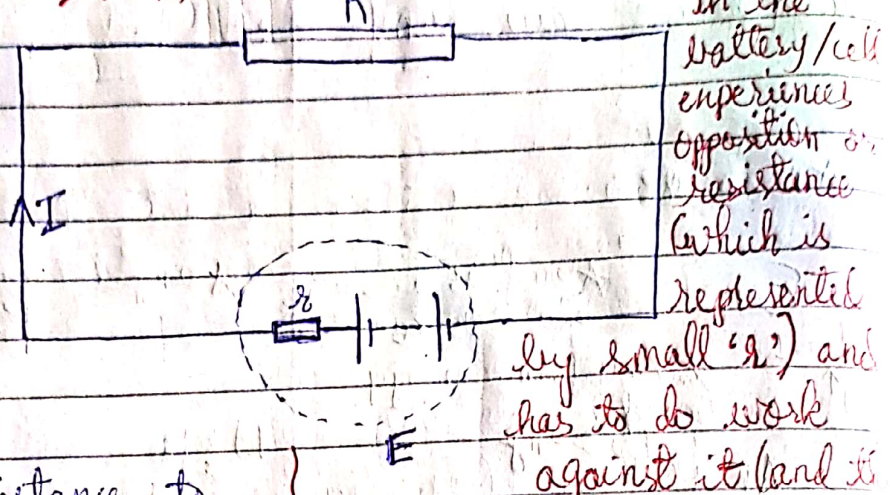 in the
R
battery/cell
experiences
opposition or
resistance
I
(which is
r
represented
by small 'r') and
has to do work
E
against it (and